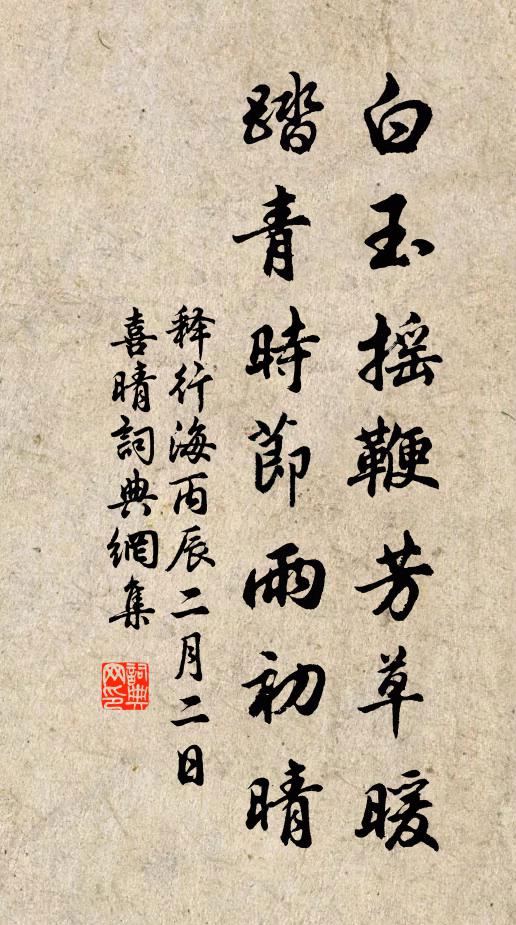 白玉摇鞭芳草暖
踏青時節雨初晴
释行海丙辰二月二日
喜晴詞典網集
詞典网印